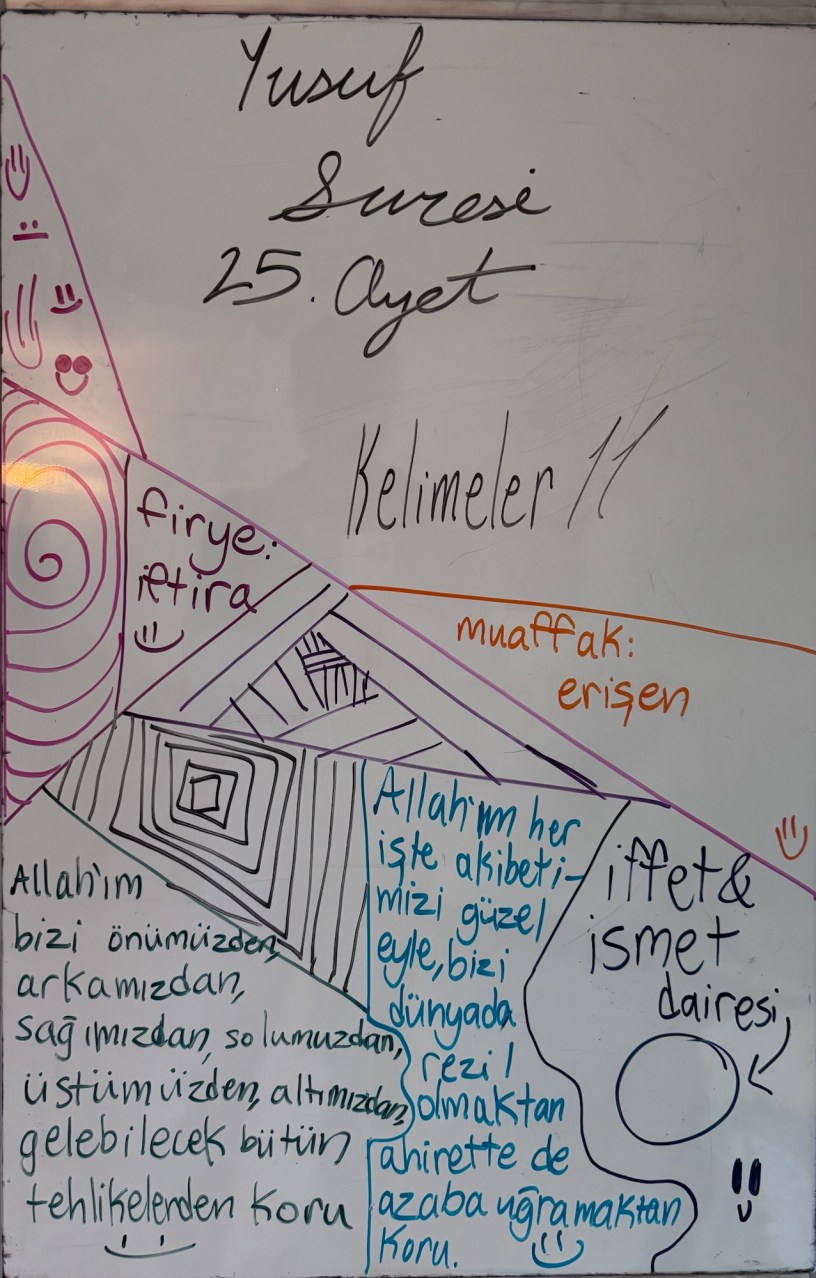 Yusuf
Suresi
25. Ayet
Kelimeler
firye:
iftira
muaffak:
erişen
Allah'ım her
işte akibeti-
mizi güzel
eyle, bizi
dünyada
rezil
olmaktan
ahirette de
azaba uğramaktan
koru.
iffet &
ismet
dairesi
Allah'ım
bizi önümüzden,
arkamızdan,
sağımızdan, solumuzdan,
üstümüzden, altımızdan,
gelebilecek bütün
tehlikelerden koru